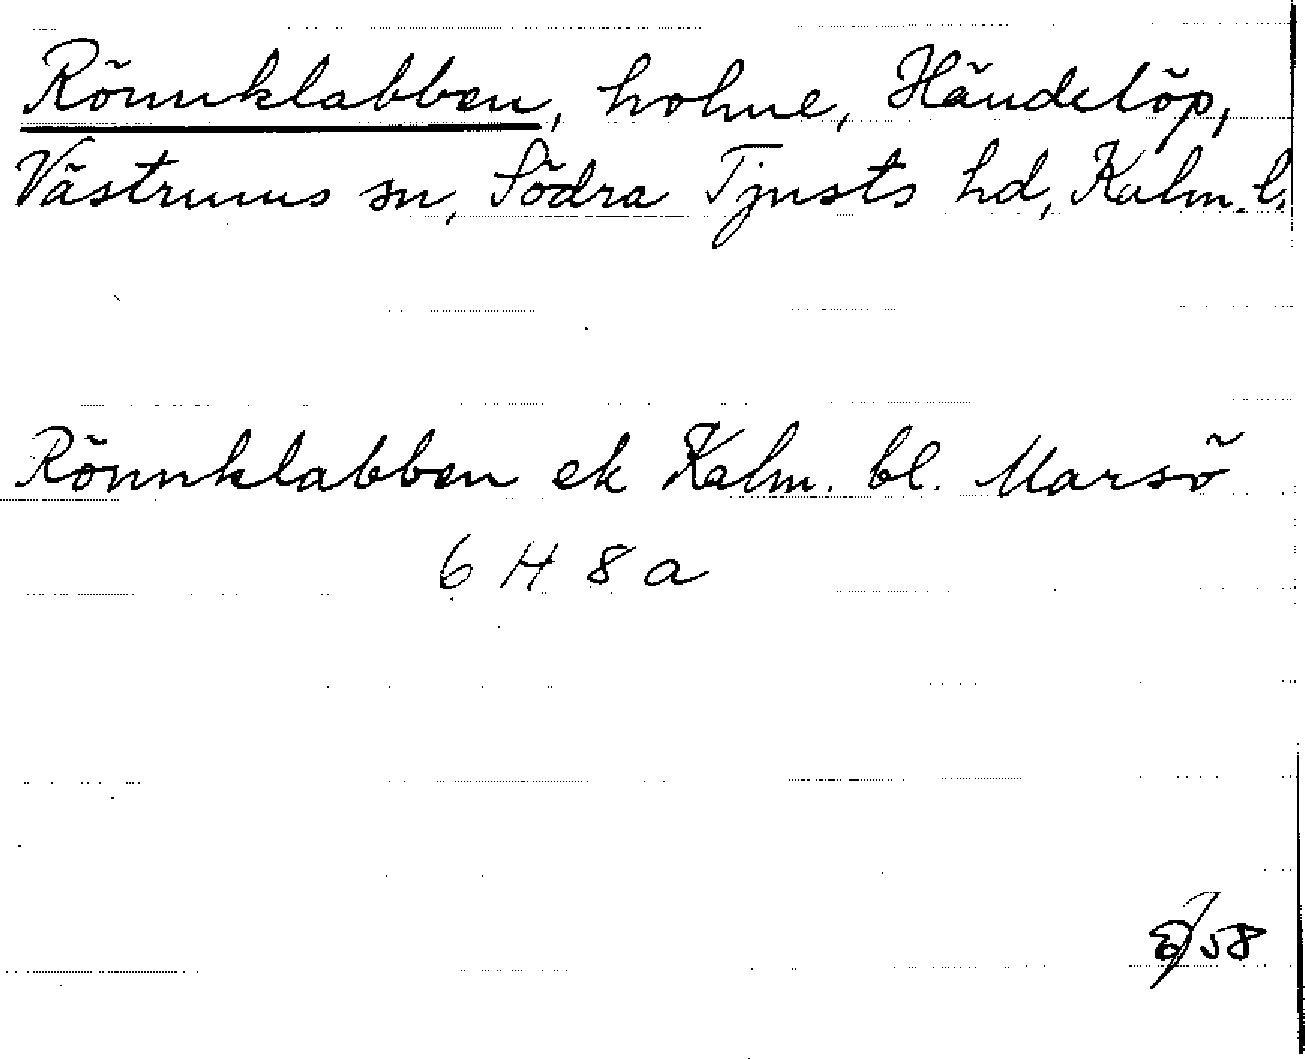 Rönnklabben, holme, Händelöp,
Västrums sn, Södra Tjusts hd, Kalm. l.
Rönnklabben ek Kalm. bl. Marsö
6 H 8 a
58